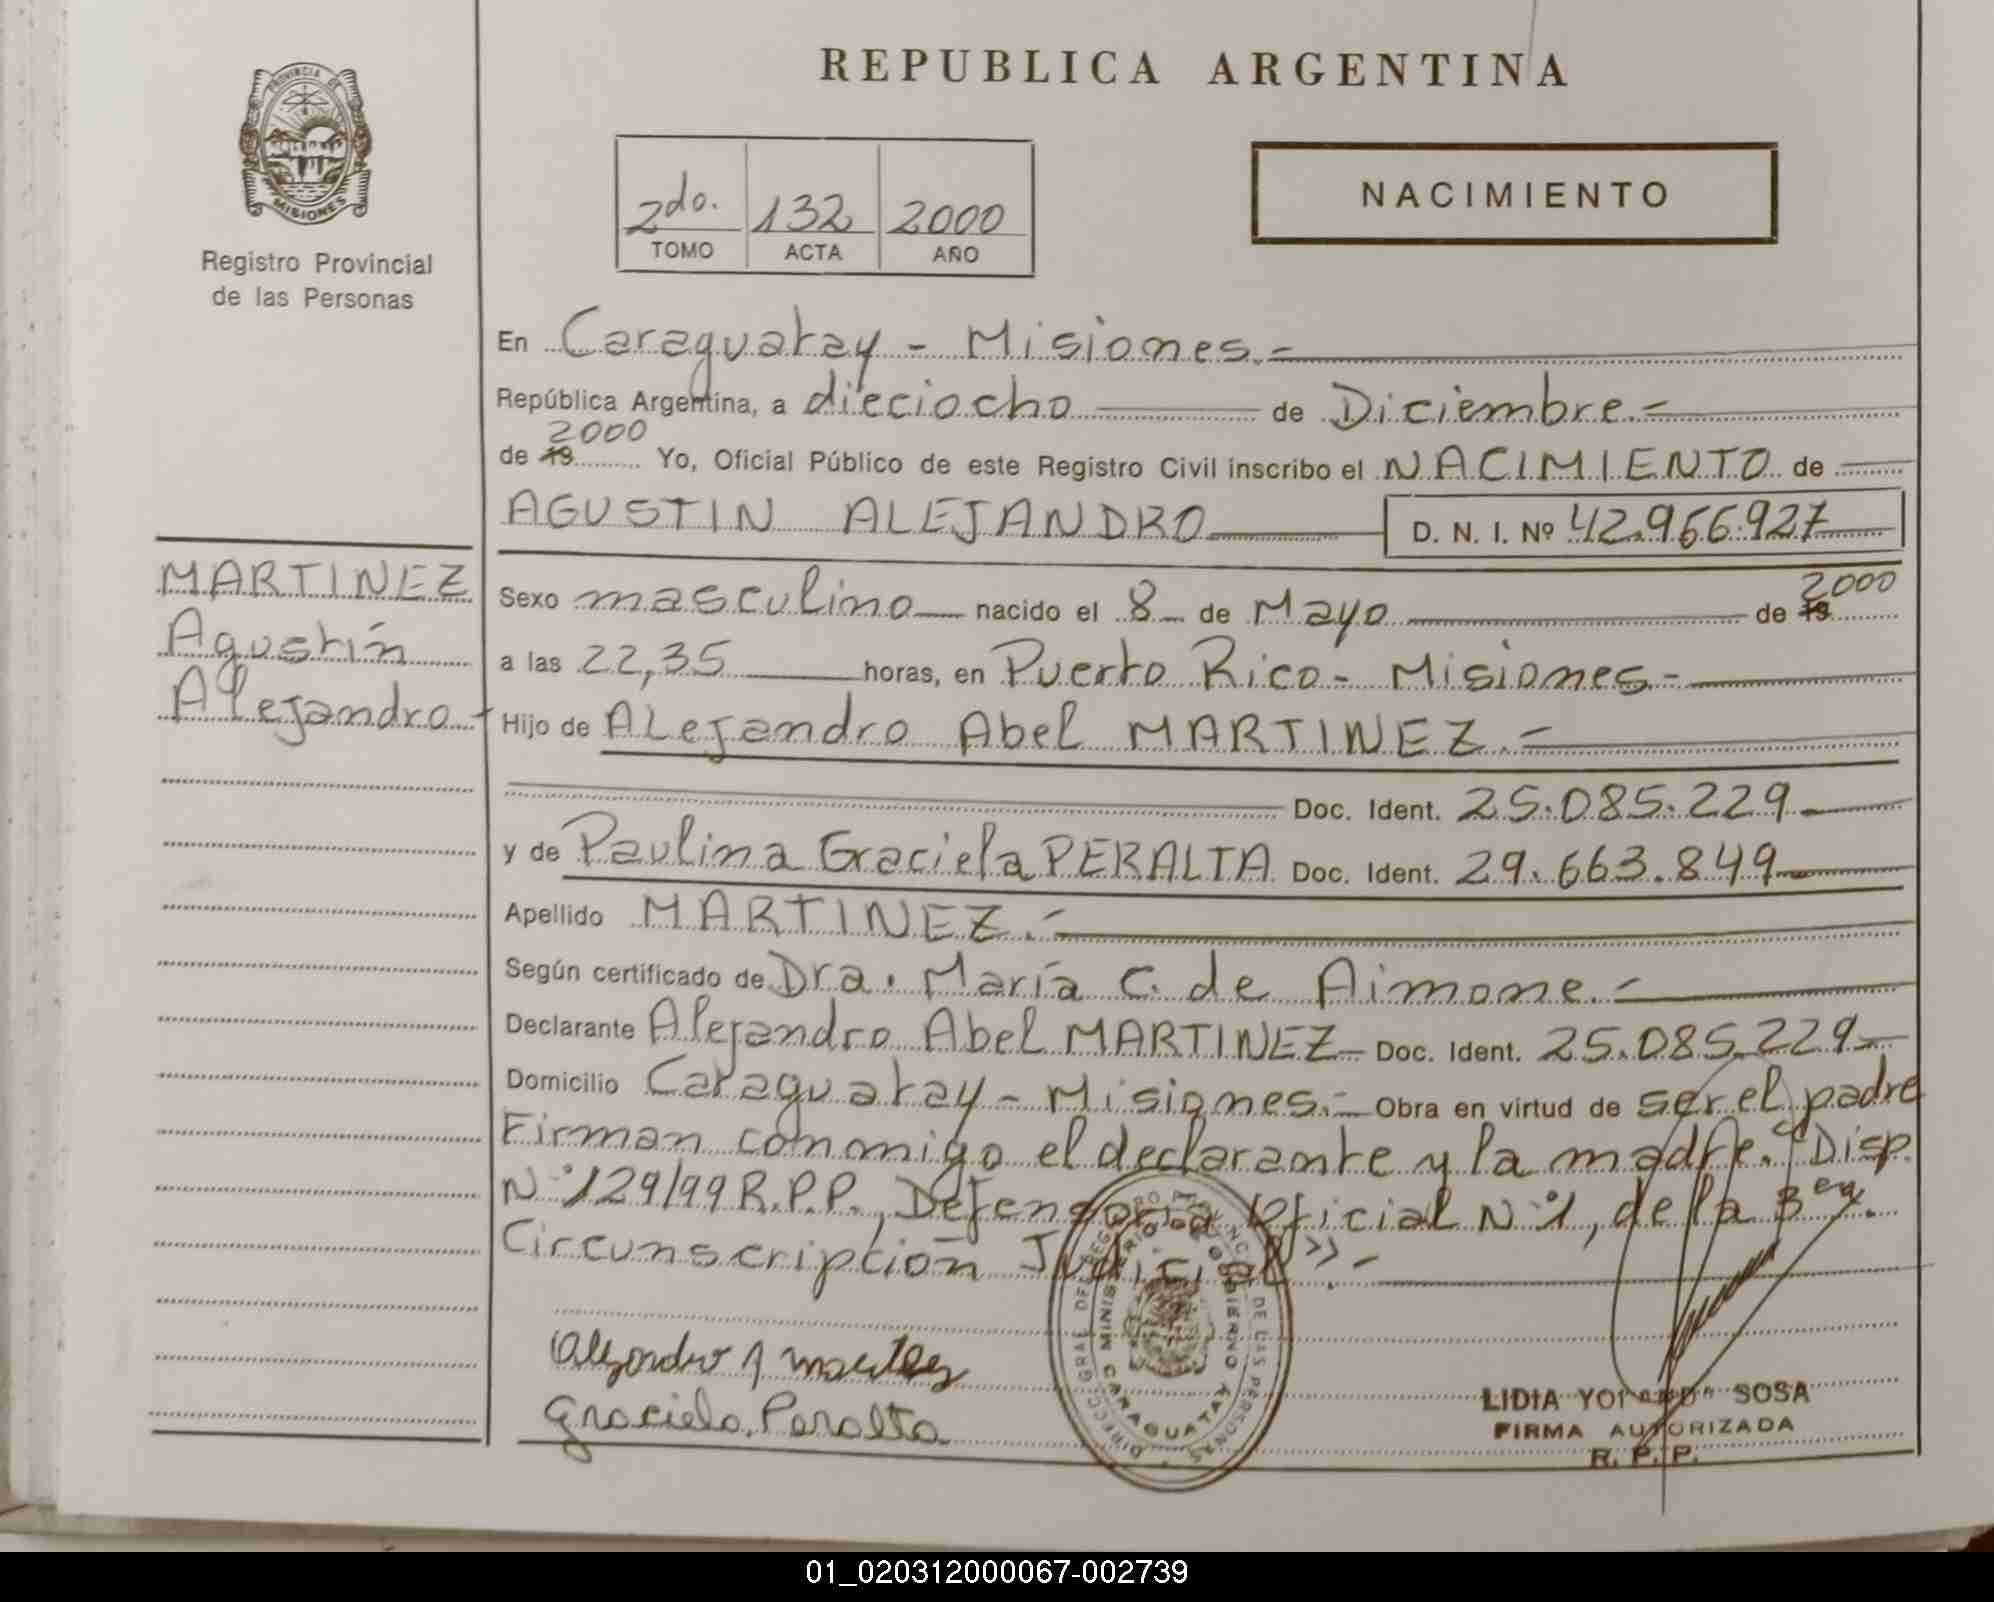 REPUBLICA ARGENTINA
PROVINCIA DE
MISIONES
Registro Provincial
de las Personas
2do. 132 2000
TOMO ACTA AÑO
NACIMIENTO
En Caraguatay - Misiones.-
República Argentina, a dieciocho de Diciembre.-
2000
de 19 Yo, Oficial Público de este Registro Civil inscribo el NACIMIENTO de
AGUSTIN ALEJANDRO D. N. I. Nº 42.966.927
MARTINEZ
Agustín
Alejandro
2000
Sexo masculino nacido el 8 de Mayo de 19
a las 22,35 horas, en Puerto Rico - Misiones.-
Hijo de ALejandro Abel MARTINEZ.-
Doc. Ident. 25.085.229
y de Paulina Graciela PERALTA Doc. Ident. 29.663.849
Apellido MARTINEZ.-
Según certificado de Dra. María C. de Aimone.-
Declarante Alejandro Abel MARTINEZ Doc. Ident. 25.085.229
Domicilio Caraguatay - Misiones.- Obra en virtud de ser el padre
Firman conmigo el declarante y la madre. "Disp.
N° 129/99 R.P.P., Defensoria Oficial N° 1, de la 3era.
Circunscripción Judicial".-
DIRECC. GRAL. DEL REGISTRO PROVINCIAL DE LAS PERSONAS
MINISTERIO DE GOBIERNO
CARAGUATAY
Alejandro A Martinez
Graciela Peralta
LIDIA YOLANDA SOSA
FIRMA AUTORIZADA
R. P. P.
01_020312000067-002739